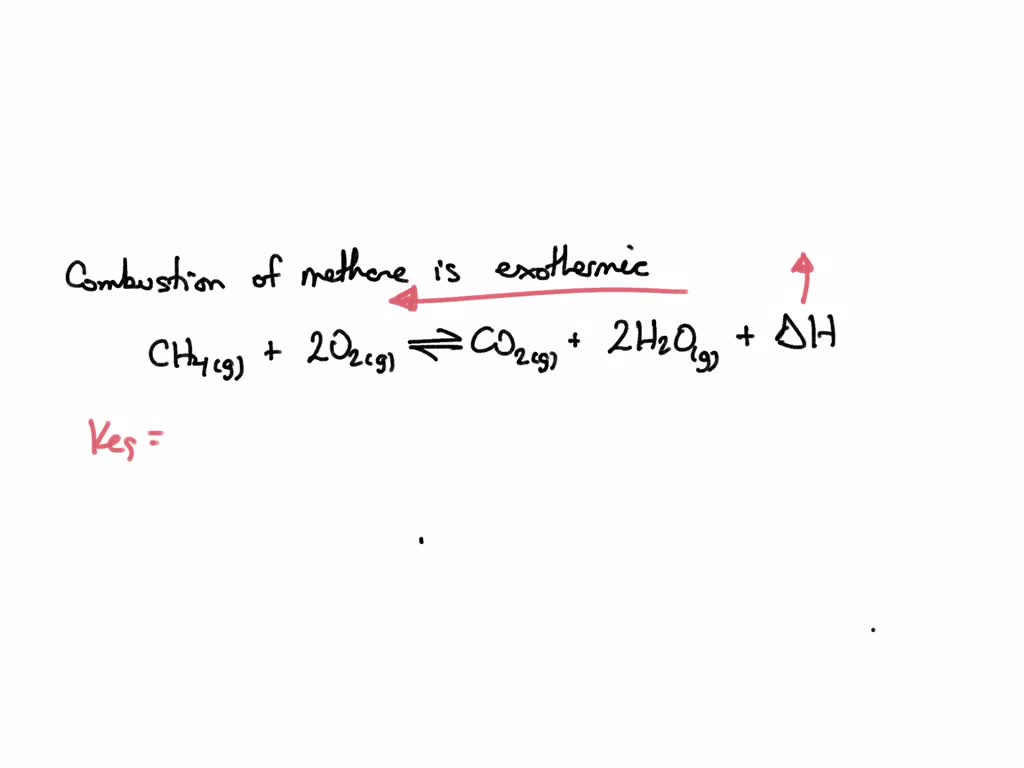 Combustion of methane is exothermic
CH4(g) + 2O2(g) ⇌ CO2(g) + 2H2O(g) + ΔH
Keq =